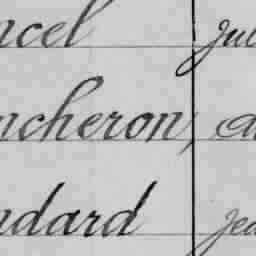 ncel Jul
ncheron, A
ndard Jea